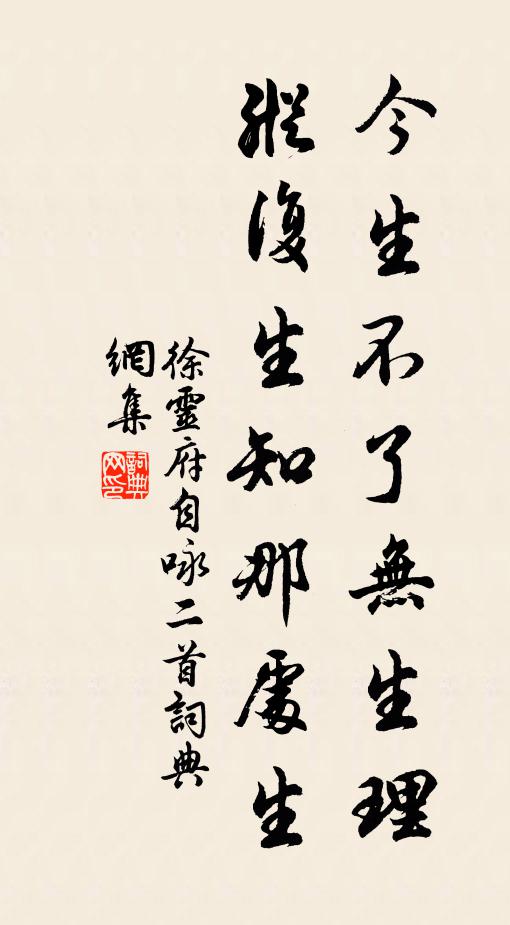 今生不了無生理
縱復生知那處生
徐靈府自咏二首詞典
網集
詞典
网印